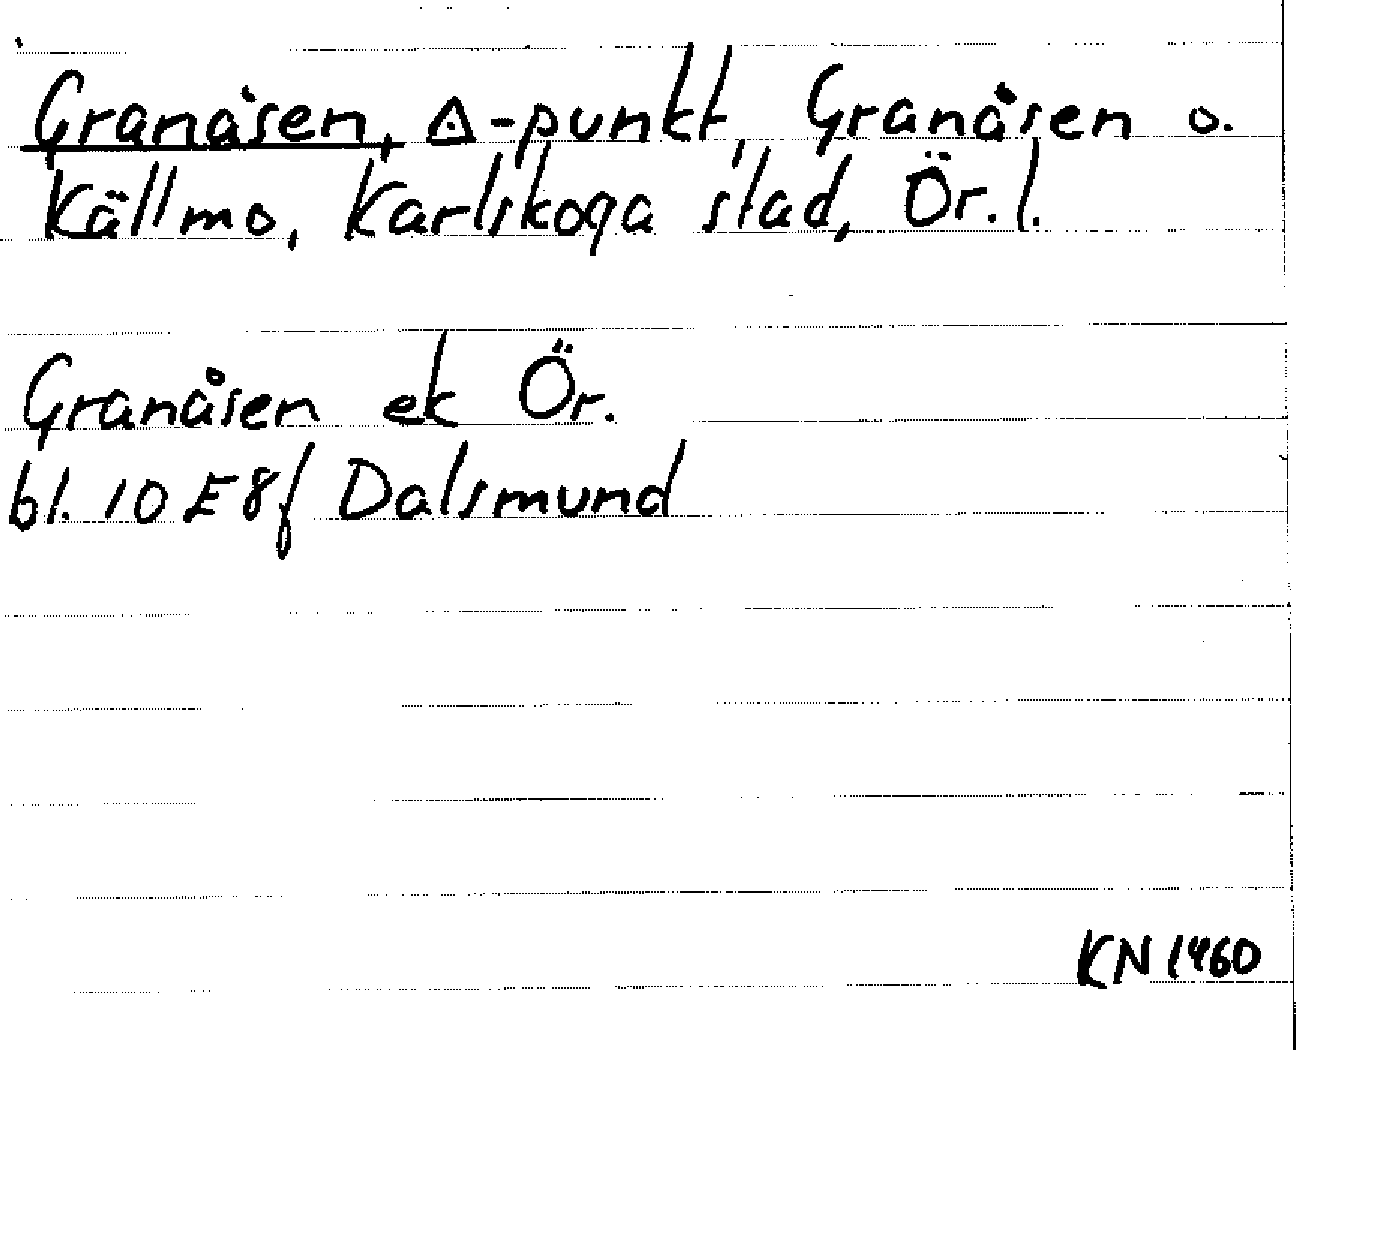 Granåsen, ∆-punkt, Granåsen o.
Källmo, Karlskoga stad, Ör. l.
Granåsen ek Ör.
bl. 10E8f Dalsmund
KN 1960